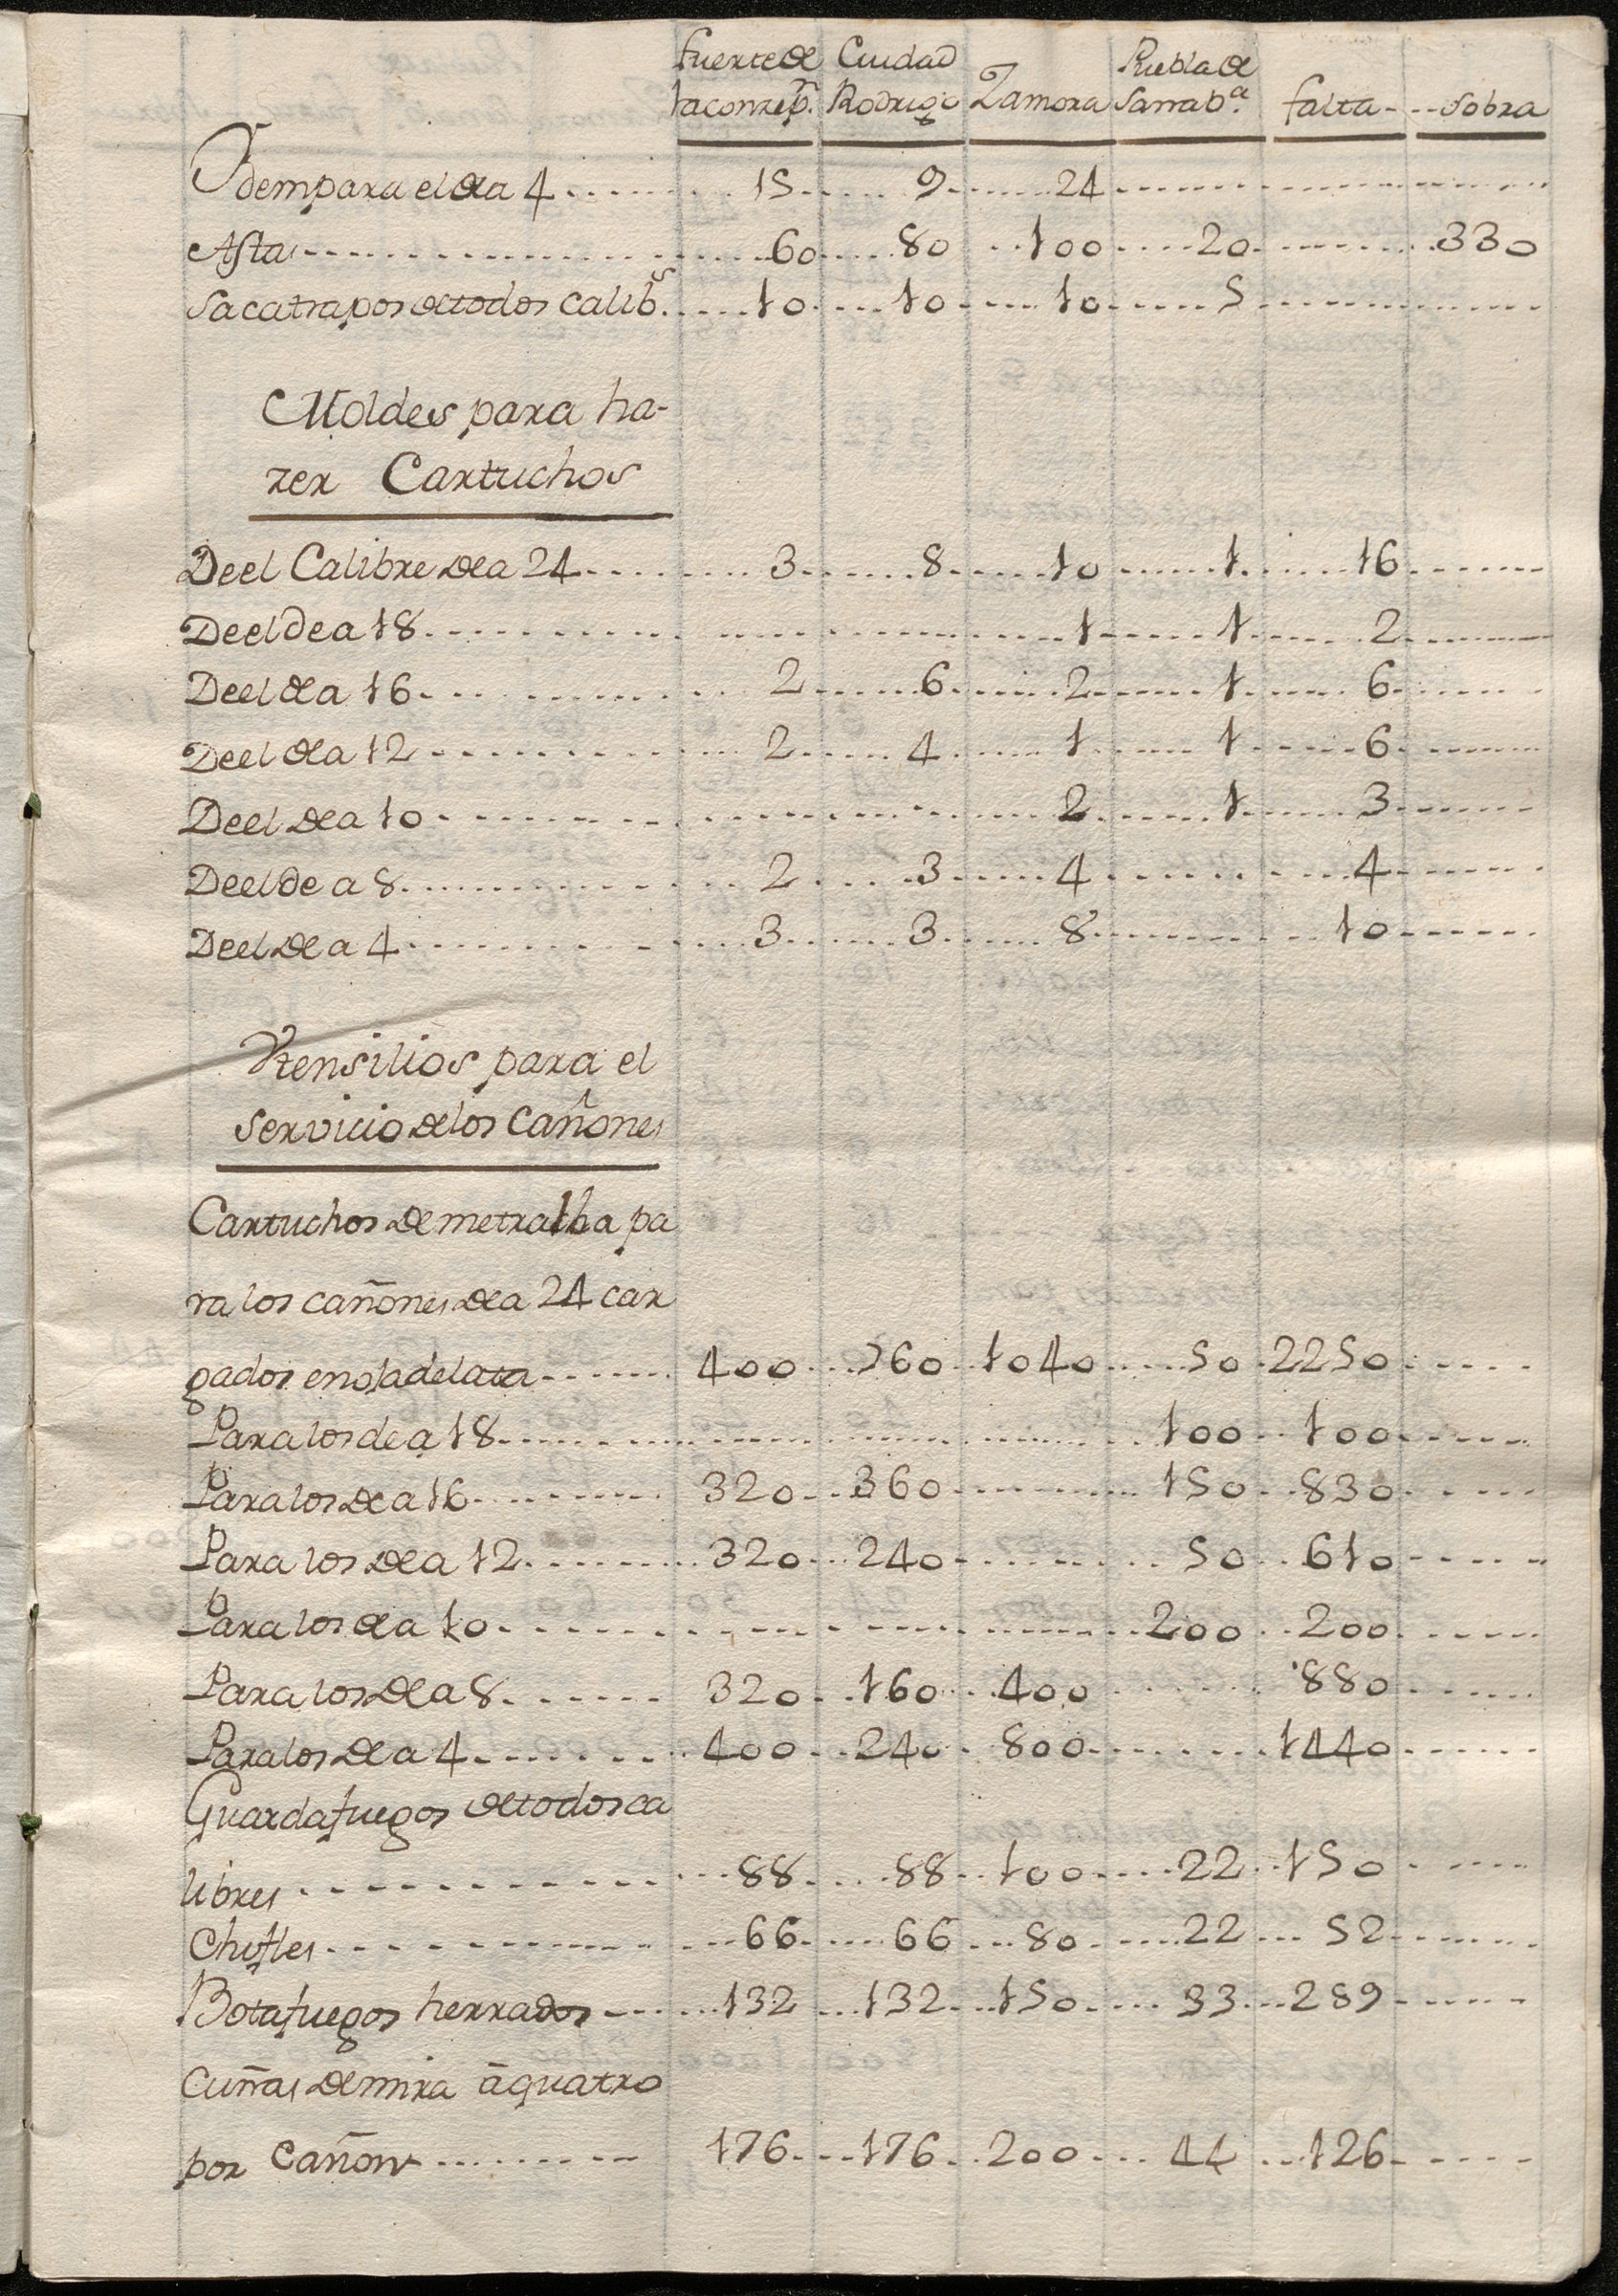 fuerte de Ciudad Puebla de
laconzepn. Rodrigo Zamora Sanaba. falta sobra
Ydem para el de a 4 15 9 24
Asta 60 80 100 20 330
Sacatrapos de todos calibs. 10 10 10 5
Moldes para ha-
zer Cartuchos
De el Calibre de a 24 3 8 10 1 16
De el de a 18 1 1 2
De el de a 16 2 6 2 1 6
De el de a 12 2 4 1 1 6
De el de a 10 2 1 3
De el de a 8 2 3 4 4
De el de a 4 3 3 8 10
Vtensilios para el
servicio de los cañones
Cartuchos de metralha pa
ra los cañones de a 24 car
gados en ojadelata 400 760 1040 50 2250
Para los de a 18 100 100
Para los de a 16 320 360 150 830
Para los de a 12 320 240 50 610
Para los de a 10 200 200
Para los de a 8 320 160 400 880
Para los de a 4 400 240 800 1440
Guardafuegos de todos ca
libres 88 88 100 22 150
Chifles 66 66 80 22 52
Botafuegos herrados 132 132 150 33 289
Cuñas de mira á quatro
por Cañon 176 176 200 44 126